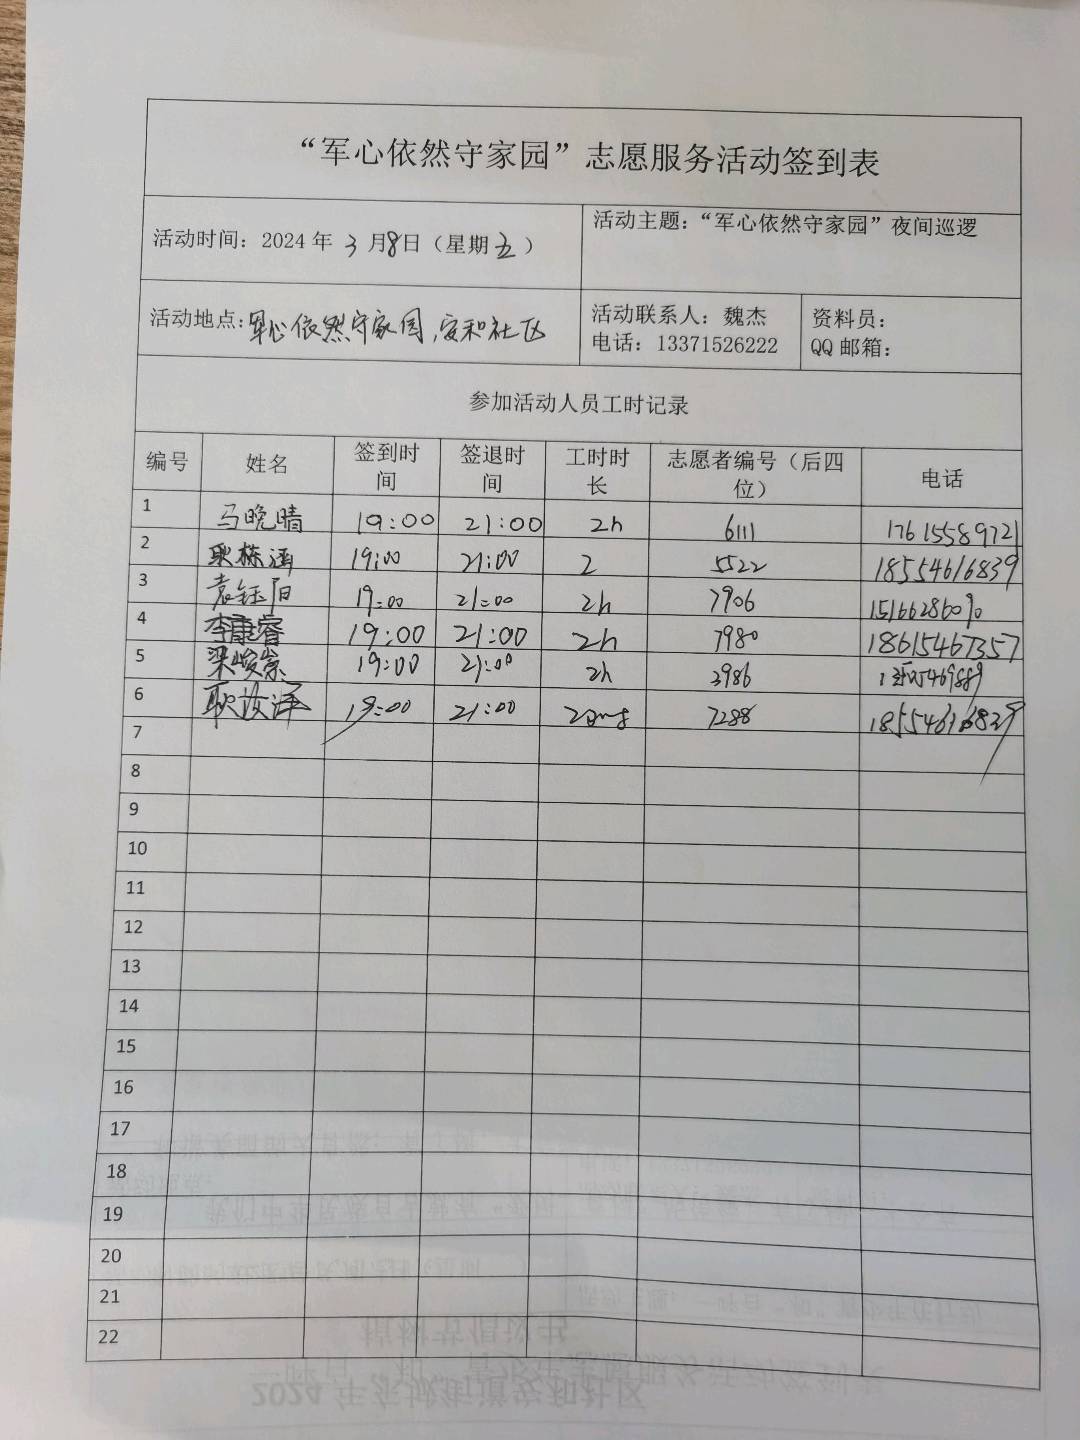 “军心依然守家园”志愿服务活动签到表
活动时间：2024年 3月8日（星期五）
活动主题：“军心依然守家园”夜间巡逻
活动地点：军心依然守家园，安和社区
活动联系人：魏杰
电话：13371526222
资料员：
QQ邮箱：
参加活动人员工时记录
编号 姓名 签到时间 签退时间 工时时长 志愿者编号（后四位） 电话
1 马晚晴 19:00 21:00 2h 6111 17615589721
2 耿栋涵 19:00 21:00 2 5522 18554616839
3 袁钰阳 19:00 21:00 2h 7906 15166286090
4 李康睿 19:00 21:00 2h 7980 18615467357
5 梁峻崇 19:00 21:00 2h 3986
6 19:00 21:00 7288 18554616839
7
8
9
10
11
12
13
14
15
16
17
18
19
20
21
22